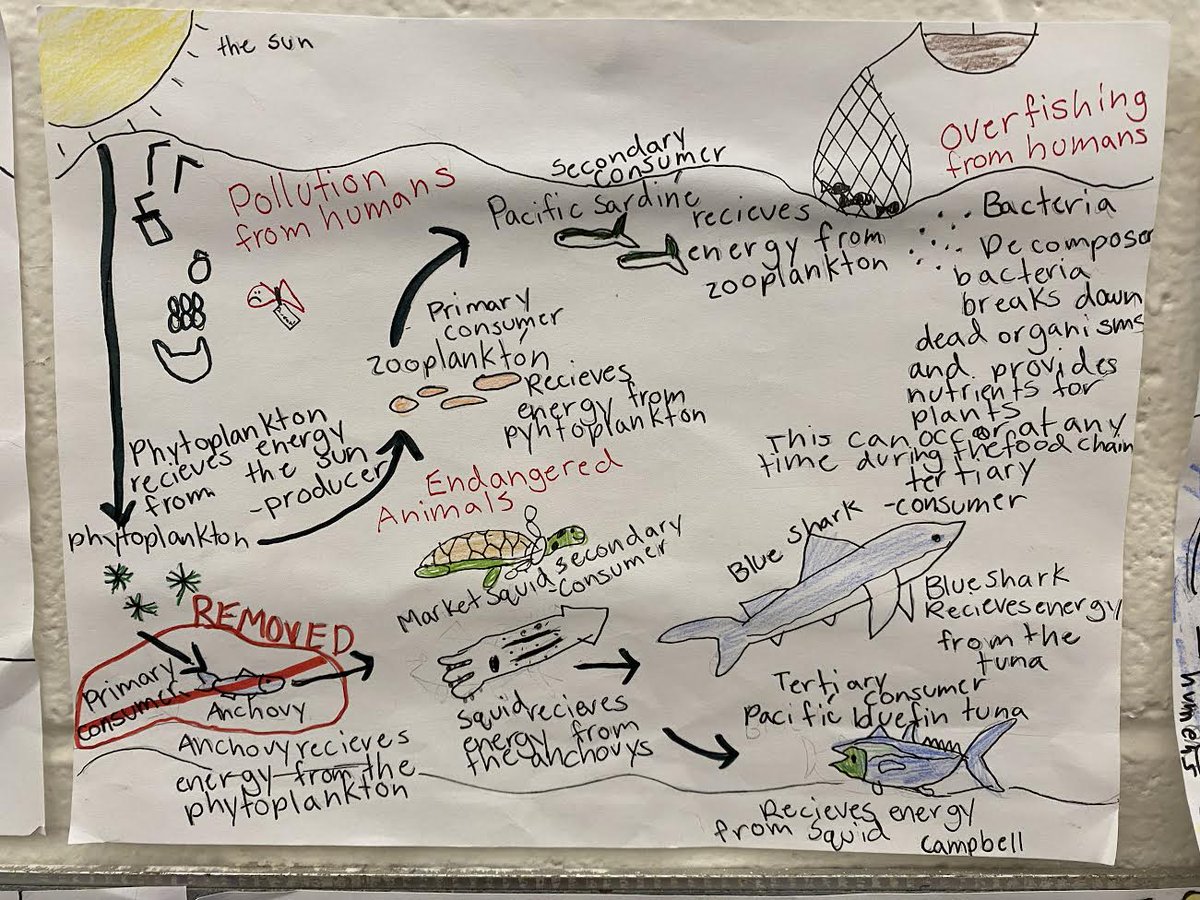 the sun
Pollution
from humans
Secondary
consumer
Pacific sardine
recieves
energy from
zooplankton
Overfishing
from humans
Bacteria
Decomposer
bacteria
breaks down
dead organisms
and provides
nutrients for
plants
This can occor at any
time during the food chain
Primary
consumer
zooplankton
Recieves
energy from
pyhtoplankton
Phytoplankton
recieves energy
from the sun
-producer
phytoplankton
Endangered
Animals
Market Squid secondary
-consumer
tertiary
-consumer
Blue shark
Blue shark
Recieves energy
from the
tuna
REMOVED
Primary
consumer
Anchovy
Anchovy recieves
energy from the
phytoplankton
Squid recieves
energy from
the anchovys
Tertiary
consumer
Pacific bluefin tuna
Recieves energy
from squid
campbell